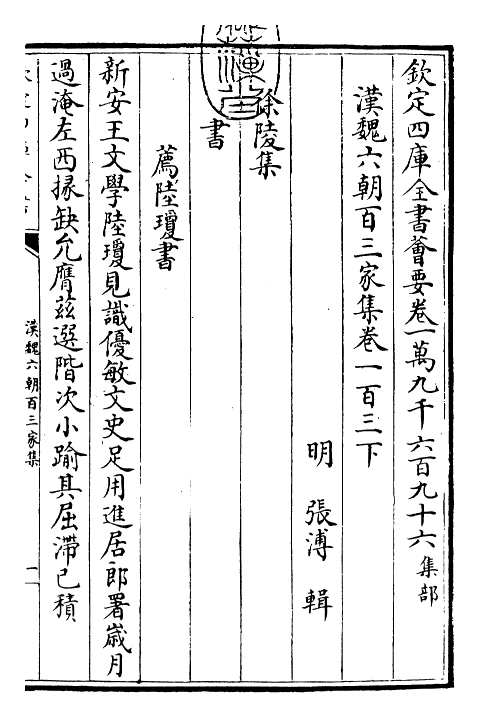 欽定四庫全書薈要卷一萬九千六百九十六集部
漢魏六朝百三家集卷一百三下
明 張溥 輯
徐陵集
書
薦陸瓊書
新安王文學陸瓊見識優敏文史足用進居郎署歲月
過淹左西掾缺允膺茲選階次小踰其屈滯已積
漢魏六朝百三家集
一